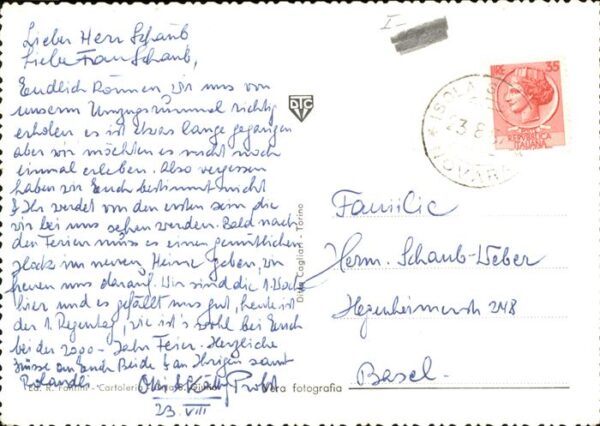 Lieber Herr Schaub
Liebe Frau Schaub,
Endlich können wir uns von
unserm Umzugsrummel richtig
erholen es ist etwas lange gegangen
aber wir möchten es nicht noch
einmal erleben. Also vergessen
haben wir Euch bestimmt nicht
Ihr werdet von den ersten sein die
wir bei uns sehen werden. Bald nach
den Ferien muss es einen gemütlichen
Hock im neuen Heime geben, wir
freuen uns darauf. Wir sind die 1. Woche
hier und es gefällt uns gut, heute ist
der 1. Regentag, wie ist's wohl bei Euch
bei der 2000-Jahr Feier. Herzliche
Grüsse an Euch Beide
samt
Rolandli
Probst
23. VIII
I-
DTC
LIRE 35
REPVBBLICA
ITALIANA
ISOLA
23.8
NOVARA
Familie
Herm. Schaub-Weber
Hegenheimerstr 248
Basel.-
Ditta Cagliari - Torino
Vera fotografia